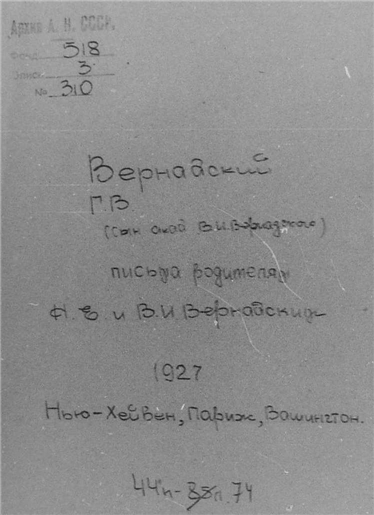 Архив А. Н. СССР.
Фонд 518
Опись 3
№ 310
Вернадский
Г.В
(сын акад В.И.Вернадского)
письма родителям
Н.Е. и В.И Вернадским
1927
Нью-Хейвен, Париж, Вашингтон.
44п- 74